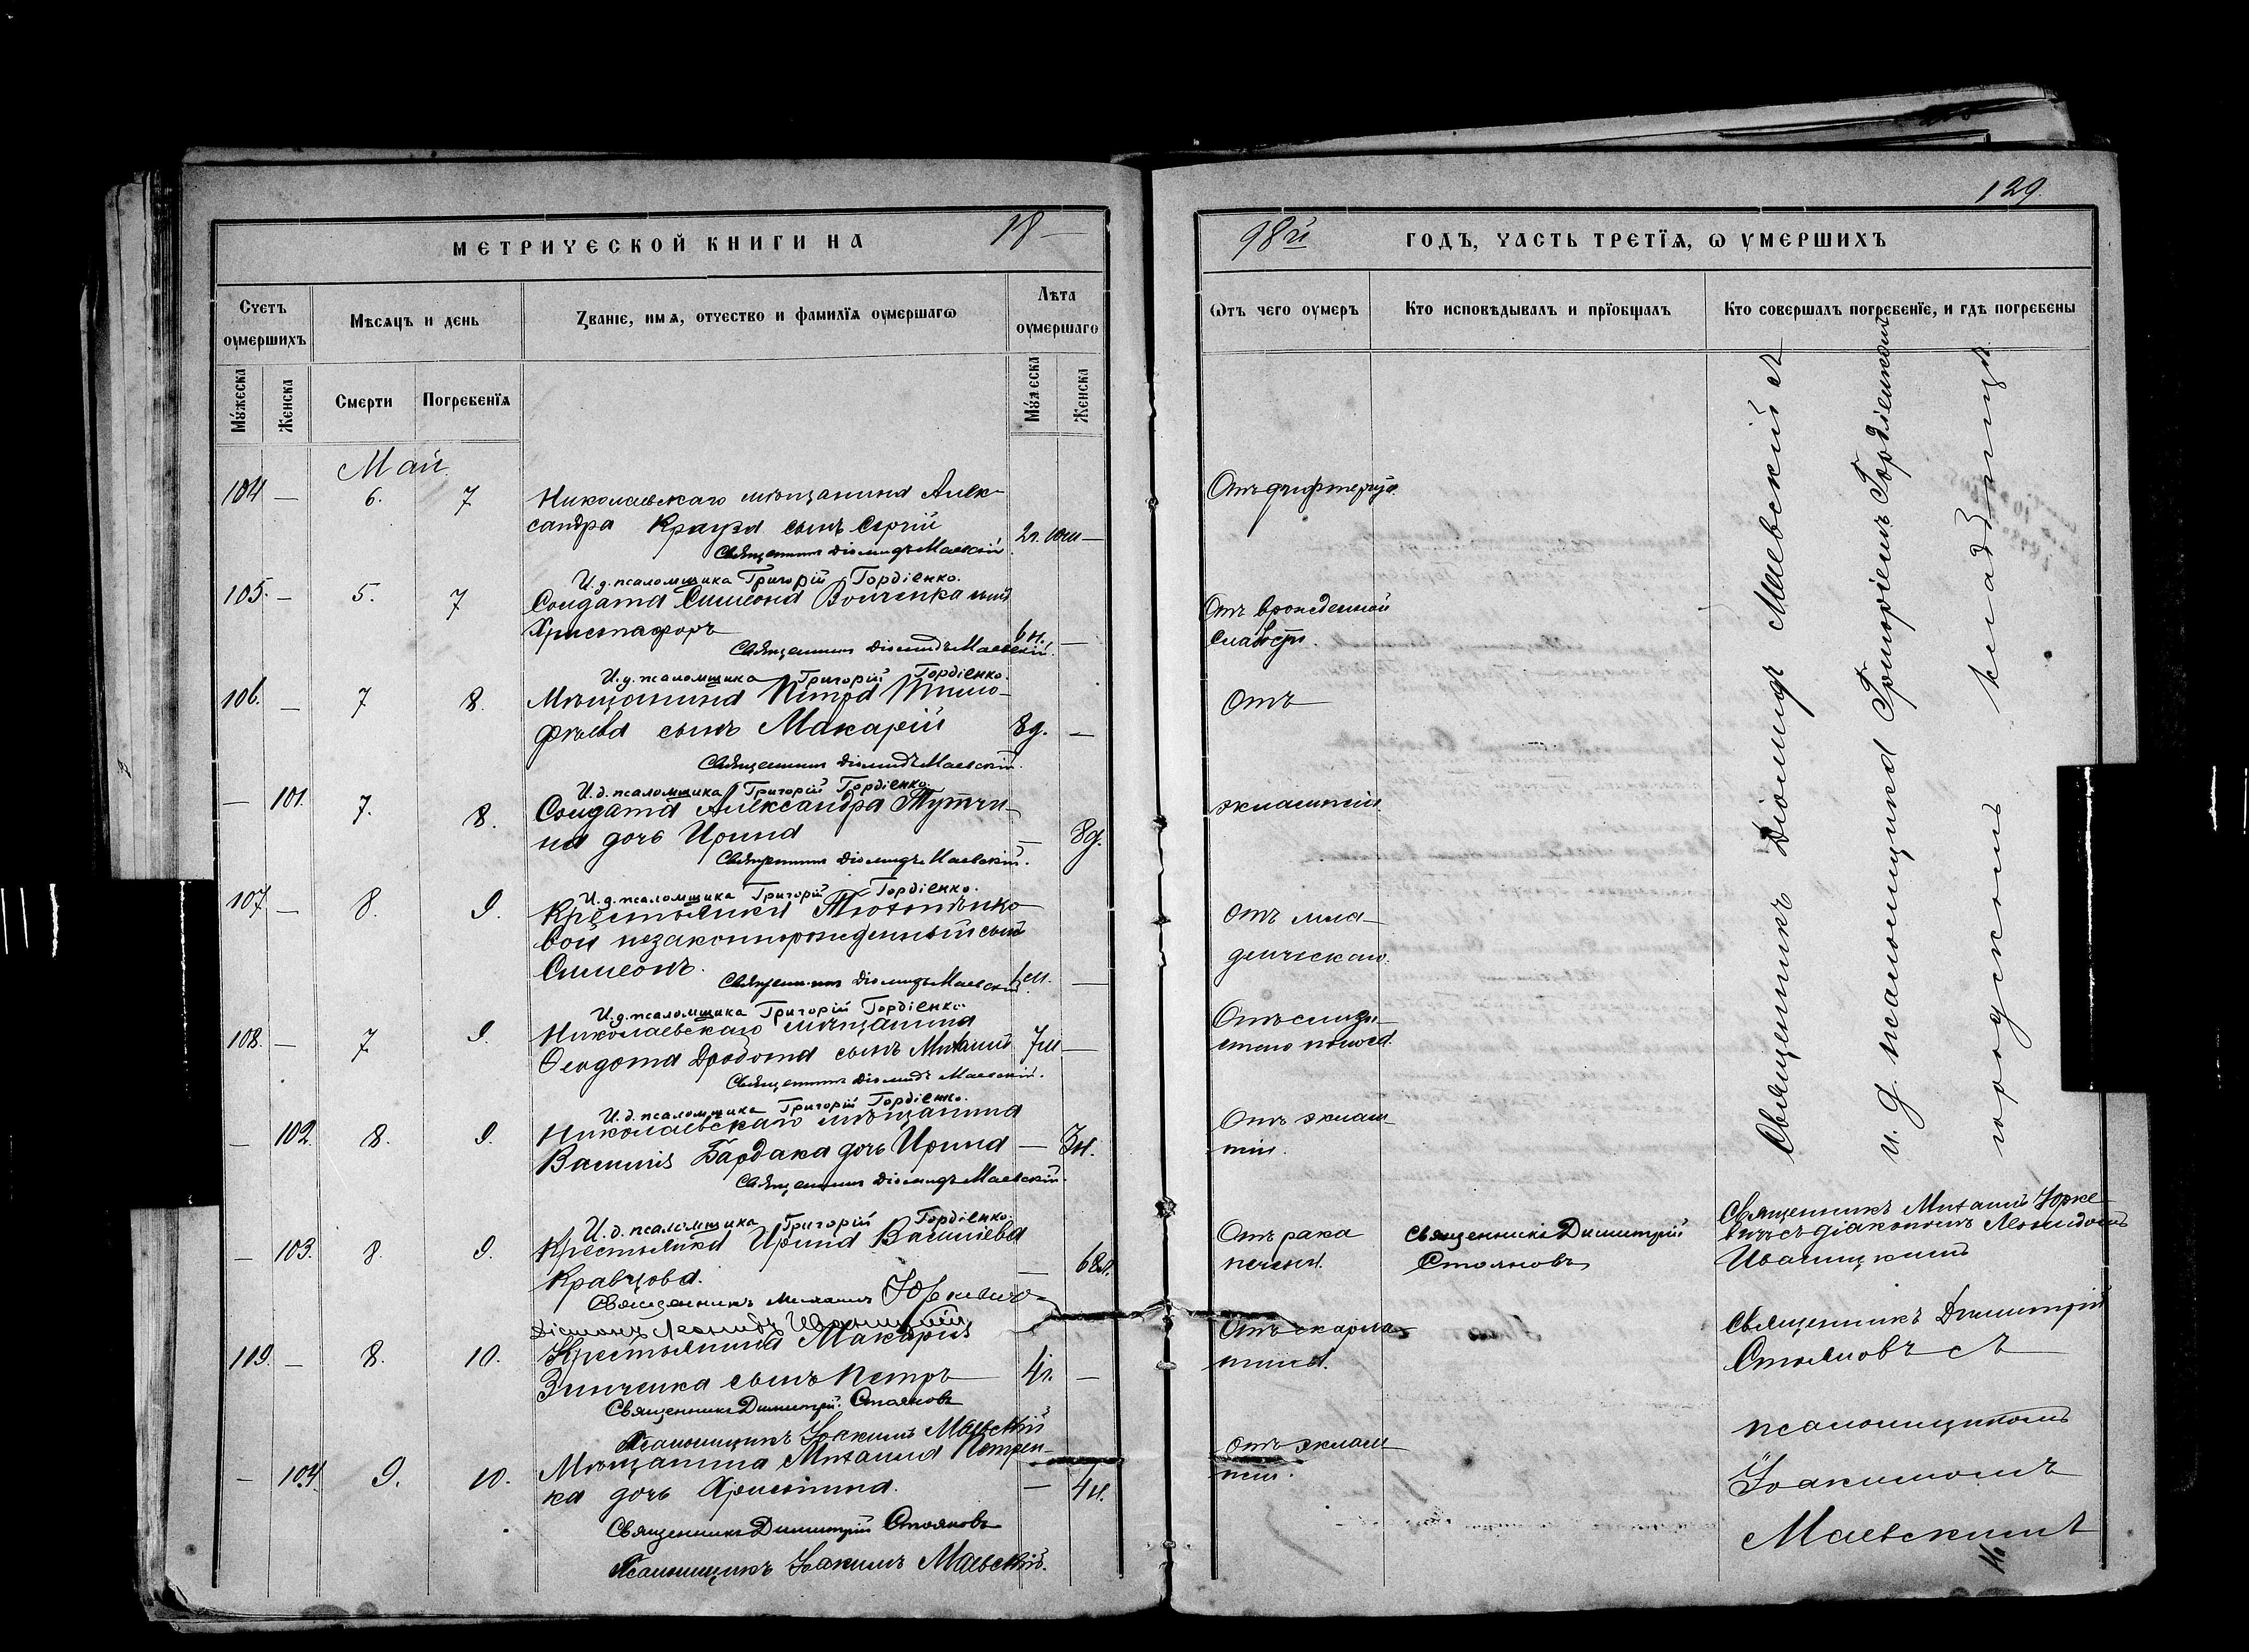 129.
МЕТРИЧЕСКОЙ КНИГИ НА 18—
98й ГОДЪ, ЧАСТЬ ТРЕТЇѦ, Ѡ ОУМЕРШИХЪ
Счетъ оумершихъ
Мѣсѧцъ и день
Званіе, имѧ, отчество и фамилїѧ оумершагѡ
Лѣта оумершаго
Ѿтъ чего оумеръ
Кто исповѣдывалъ и прїобщалъ
Кто совершалъ погребенїе, и гдѣ погребены
Мужеска
Женска
Смерти
Погребенїѧ
Мужеска
Женска
Май.
104 — 6. 7 Николаевскаго мѣщанина Алек-
сандра Крауза сынъ Сергій 2г. 10м —
Отъ дифтерита
Священникъ Діомидъ Маевскій
И. д. псаломщика Григорій Гордіенко.
105. — 5. 7 Солдата Симеона Волченка сынъ
Христофоръ 6 н. —
Отъ врожденной
слабости.
Священникъ Діомидъ Маевскій.
И. д. псаломщика Григорій Гордіенко.
106. — 7 8. Мѣщанина Петра Тимо-
фѣева сынъ Макарій 8д. —
Отъ
Священникъ Діомидъ Маевскій.
И. д. псаломщика Григорій Гордіенко.
— 101. 7. 8. Солдата Александра
на дочь Ирина — 8д.
эклампсіи.
Священникъ Діомидъ Маевскій.
И. д. псаломщика Григорій Гордіенко.
107 — 8. 9. Крестьянки
вой незаконнорожденный сынъ
Симеонъ. 1 м. —
Отъ мла-
денческаго.
Священникъ Діомидъ Маевскій
И. д. псаломщика Григорій Гордіенко.
108. — 7 9. Николаевскаго мѣщанина
Ѳеодота Дробота сынъ Михаилъ 7м —
Отъ слизи-
стаго поноса.
Священникъ Діомидъ Маевскій.
И. д. псаломщика Григорій Гордіенко.
— 102. 8. 9. Николаевскаго мѣщанина
Василія Бардака дочь Ирина — 3н.
Отъ эклам-
псіи.
Священникъ Діомидъ Маевскій.
И. д. псаломщика Григорій Гордіенко.
Священникъ Діомидъ Маевскій съ
и. д. псаломщика Григоріемъ Гордіенкомъ
городскомъ кладбищѣ
— 103. 8. 9. Крестьянка Ирина Васильева
Кравцова. — 68л.
Отъ рака
печени.
Священникъ Димитрій
Стояновъ
Священникъ Михаилъ Юрке
вичъ съ діакономъ Леонидомъ
Иваницкимъ
Священникъ Михаилъ Юркевичъ
Діаконъ Леонидъ Иваницкій
119. — 8. 10. Крестьянина Макарія
Зинченка сынъ Петръ 4г. —
Отъ скарла-
тины.
Священникъ Димитрій Стояновъ
Псаломщикъ Іоакимъ Маевскій
— 104. 9. 10. Мѣщанина Михаила Петрен-
ка дочь Христина. — 4н.
Отъ эклам
псіи.
Священникъ Димитрій Стояновъ
Псаломщикъ Іоакимъ Маевскій.
Священникъ Димитрій
Стояновъ съ
псаломщикомъ
Іоакимомъ
Маевскимъ